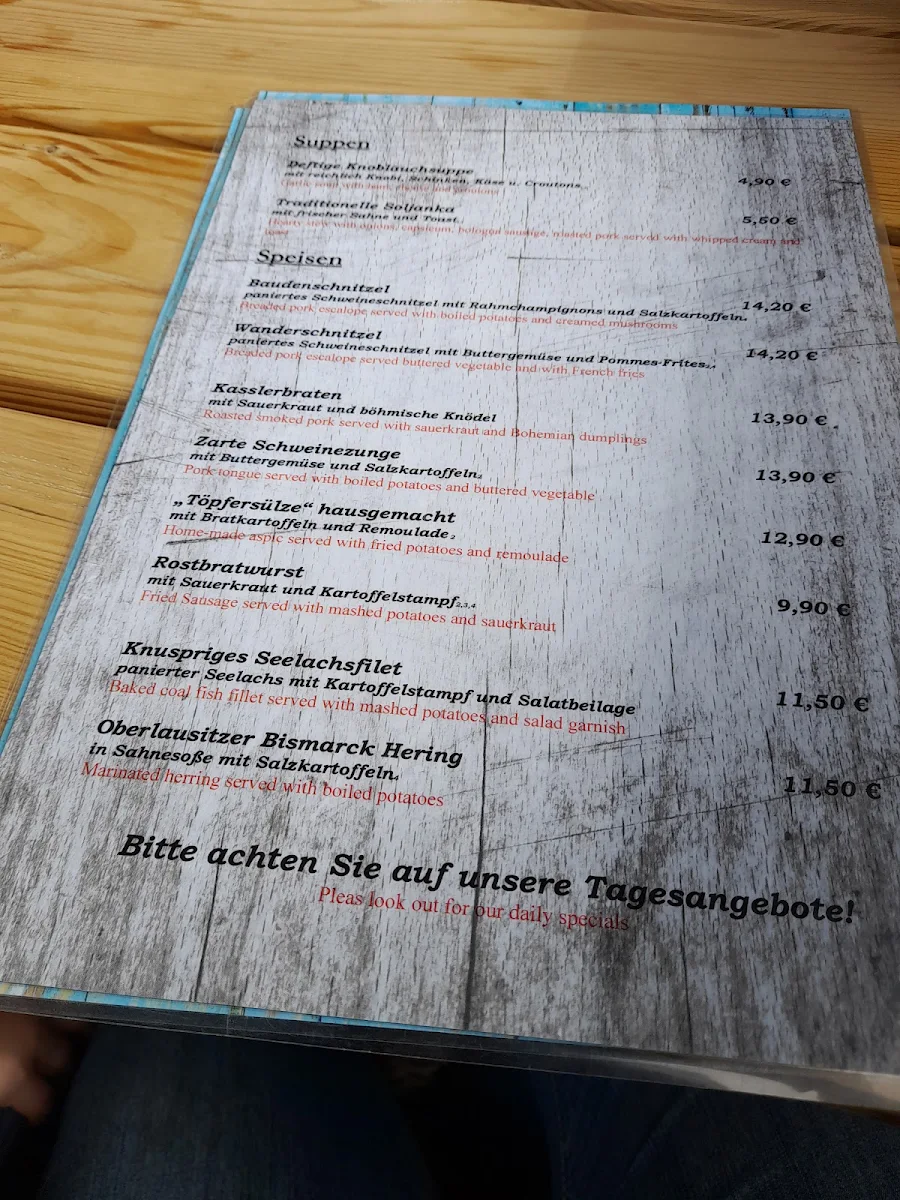 Suppen
Deftige Knoblauchsuppe
mit reichlich Knobi, Schinken, Käse u. Croutons
4,90 €
Garlic soup with
Traditionelle Soljanka
mit frischer Sahne und Toast
5,50 €
Hearty stew with onions, capsicum, bologna sausage, roasted pork served with whipped cream and
toast
Speisen
Baudenschnitzel
paniertes Schweineschnitzel mit Rahmchampignons und Salzkartoffeln
14,20 €
Breaded pork escalope served with boiled potatoes and creamed mushrooms
Wanderschnitzel
paniertes Schweineschnitzel mit Buttergemüse und Pommes-Frites
14,20 €
Breaded pork escalope served buttered vegetable and with French fries
Kasslerbraten
mit Sauerkraut und böhmische Knödel
13,90 €
Roasted smoked pork served with sauerkraut and Bohemian dumplings
Zarte Schweinezunge
mit Buttergemüse und Salzkartoffeln2
13,90 €
Pork tongue served with boiled potatoes and buttered vegetable
„Töpfersülze“ hausgemacht
mit Bratkartoffeln und Remoulade2
12,90 €
Home-made aspic served with fried potatoes and remoulade
Rostbratwurst
mit Sauerkraut und Kartoffelstampf2,3,4
9,90 €
Fried Sausage served with mashed potatoes and sauerkraut
Knuspriges Seelachsfilet
panierter Seelachs mit Kartoffelstampf und Salatbeilage
11,50 €
Baked coal fish fillet served with mashed potatoes and salad garnish
Oberlausitzer Bismarck Hering
in Sahnesoße mit Salzkartoffeln4
11,50 €
Marinated herring served with boiled potatoes
Bitte achten Sie auf unsere Tagesangebote!
Pleas look out for our daily specials